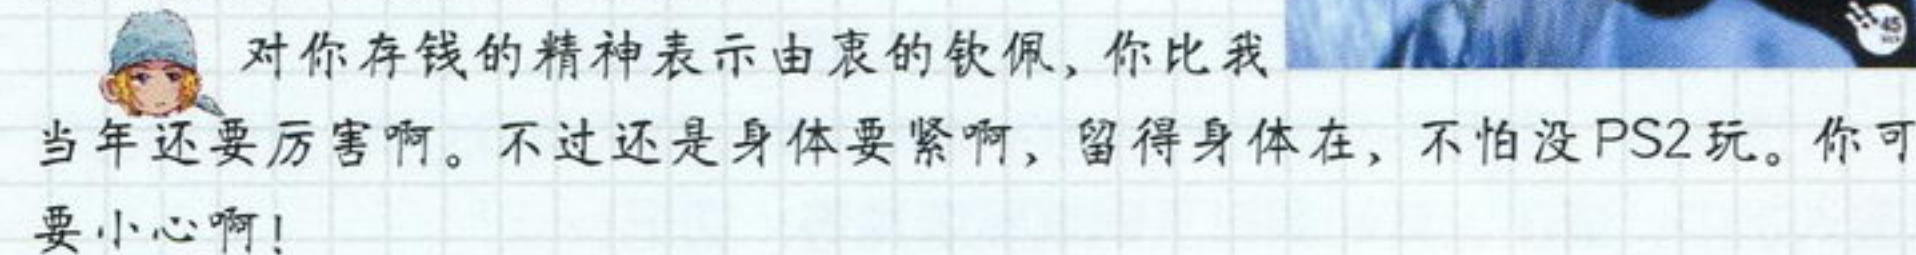 对你存钱的精神表示由衷的钦佩，你比我
当年还要厉害啊。不过还是身体要紧啊，留得身体在，不怕没PS2玩。你可
要小心啊！
45